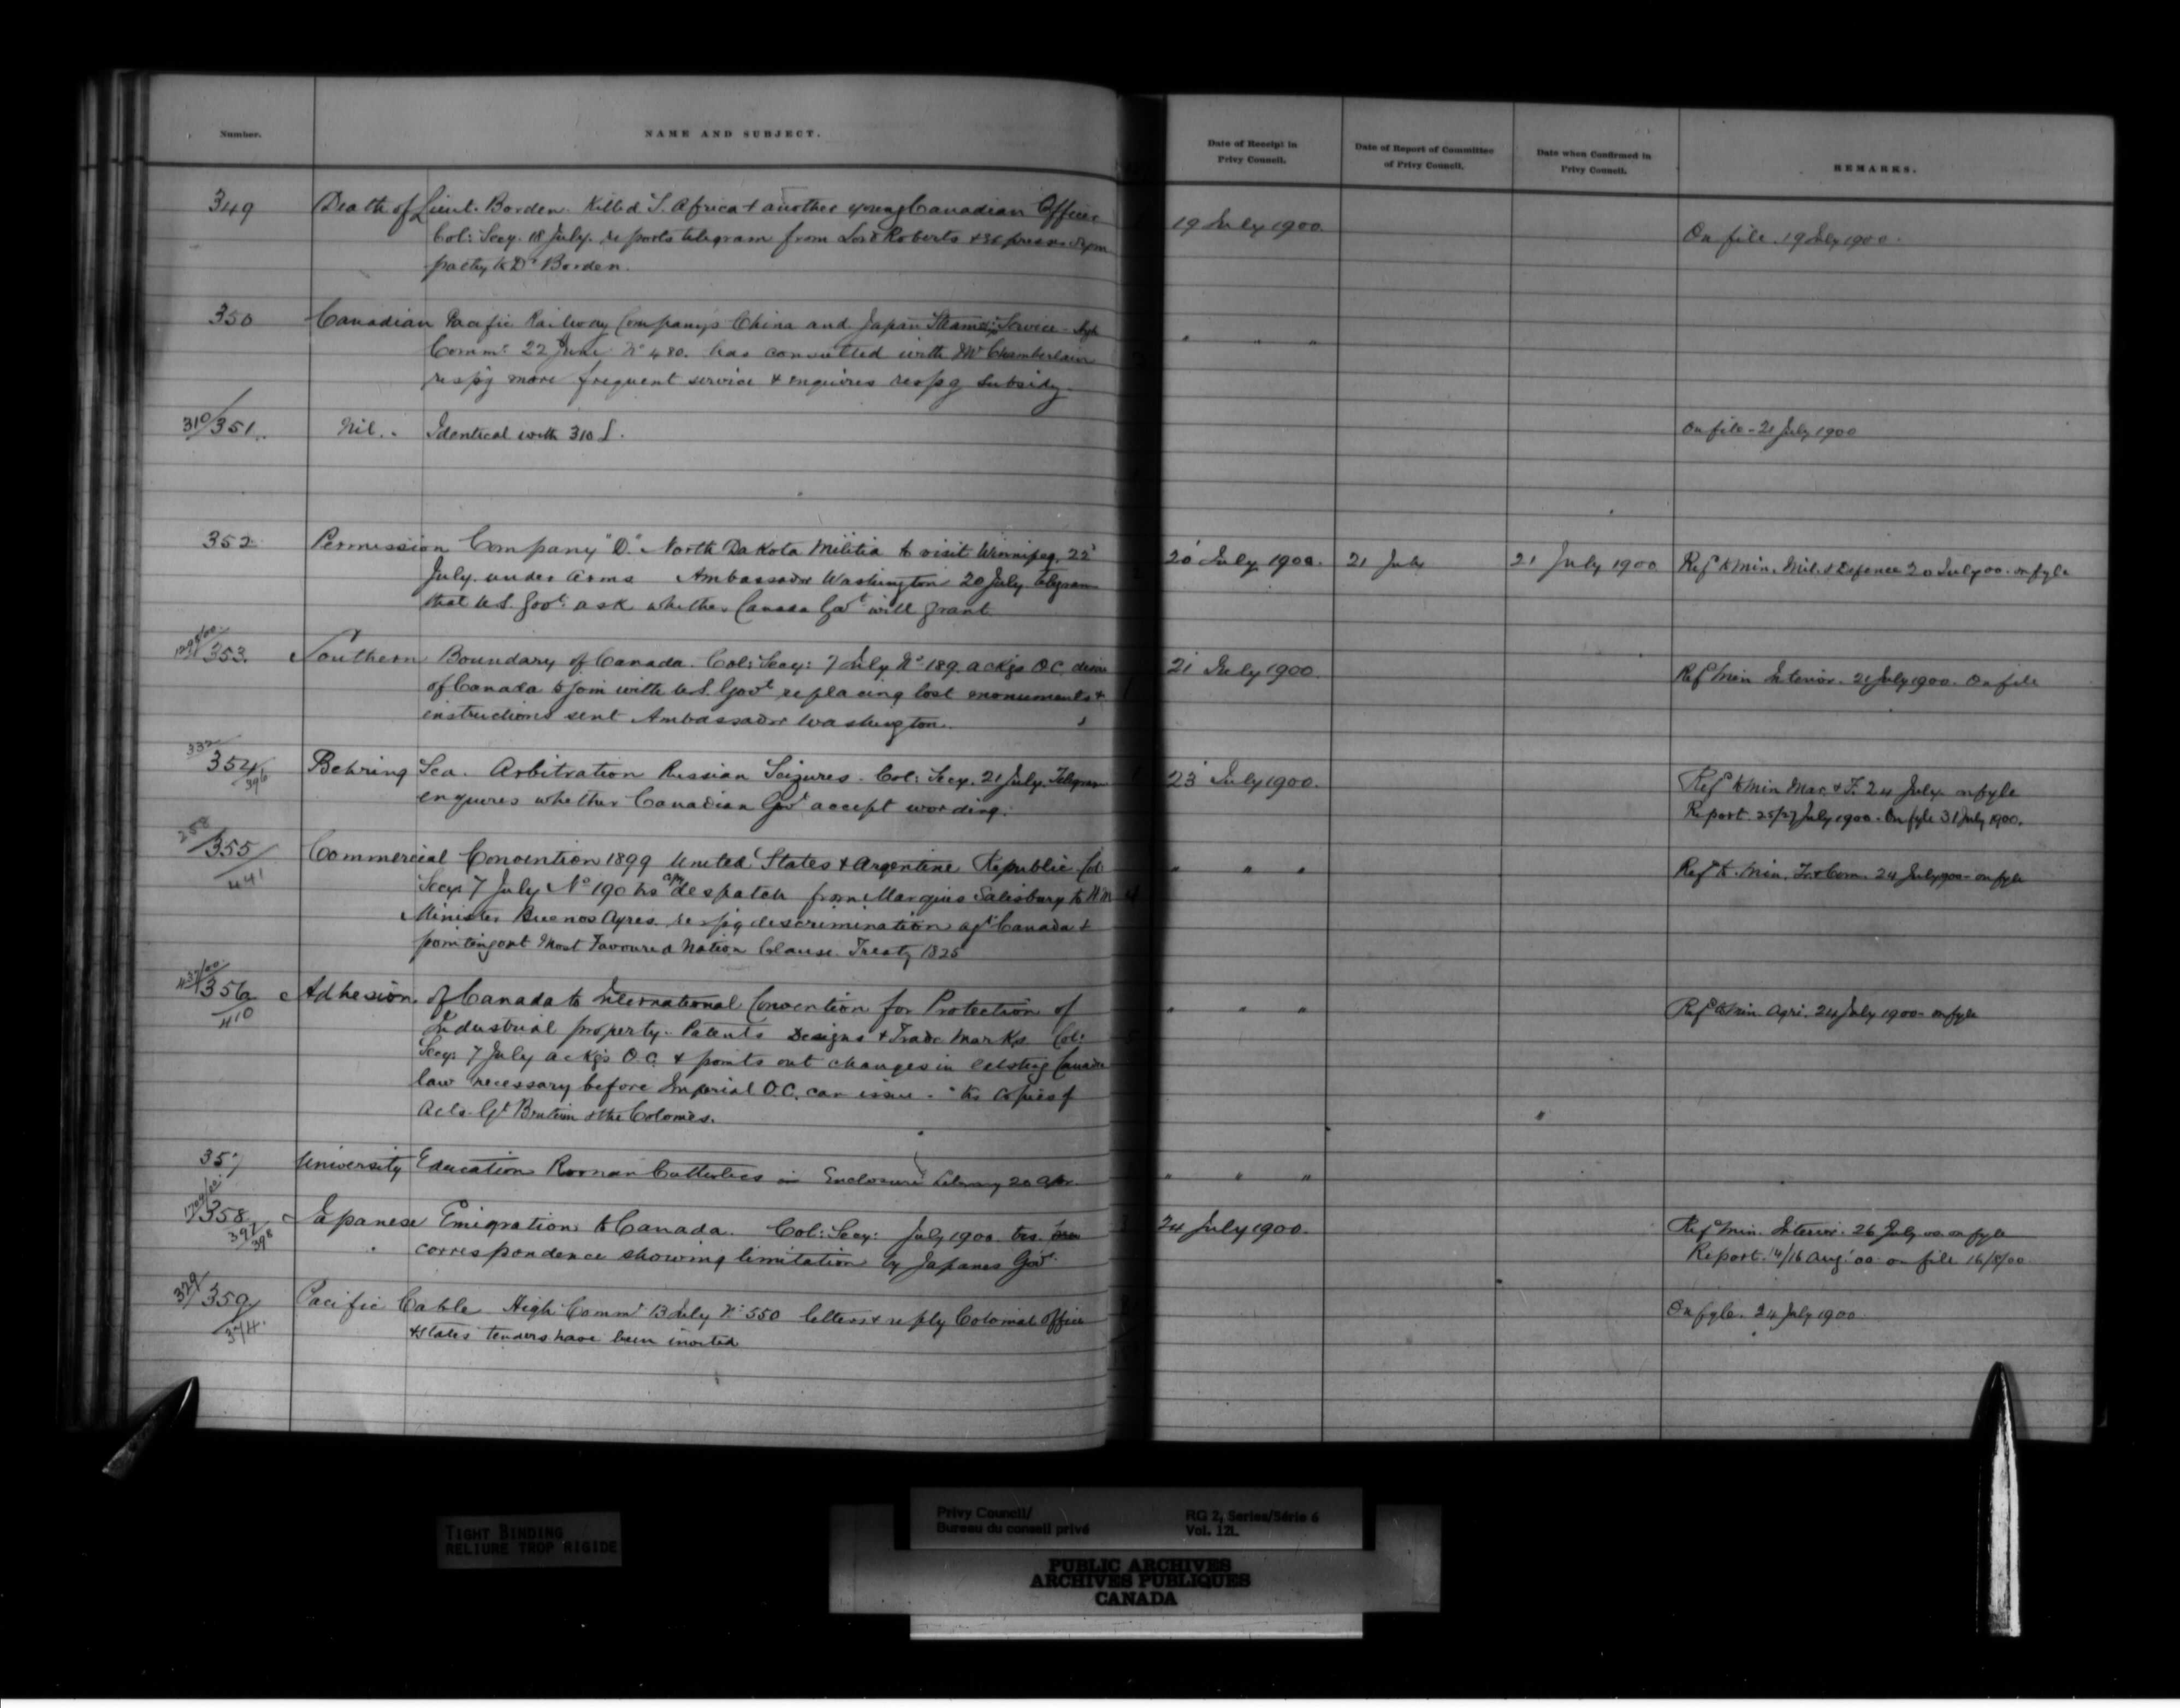 Number.
NAME AND SUBJECT.
Date of Receipt in
Privy Council.
Date of Report of Committee
of Privy Council.
Date when Confirmed in
Privy Council.
REMARKS.
349 Death of Lieut. Borden. Killed S. Africa & another young Canadian Officer 19 July 1900.
Col: Secy. 18 July. reports telegram from Lord Roberts & expresses sym On file. 19 July 1900.
pathy to Dr Borden.
350 Canadian Pacific Railway Company's China and Japan Steamer Service - High
Commr 22 June No 480. has consulted with Mr Chamberlain " " "
respg more frequent service & enquires respg subsidy.
310/351. Nil. Identical with 310 On file - 21 July 1900
352 Permission Company "D." North Dakota Militia to visit Winnipeg. 22 20 July 1900. 21 July 21 July 1900 Ref to Min. Mil. & Defence 20 July 00. on fyle
July. under arms Ambassador Washington 20 July. telegram
that U.S. Govt ask whether Canada Govt will grant.
353. Southern Boundary of Canada. Col: Secy: 7 July No 189. ackgs O.C. desire 21 July 1900. Ref Min Interior. 21 July 1900. On file
of Canada to join with U.S. Govt replacing lost monuments &
instructions sent Ambassador Washington.
332
354 Behring Sea. Arbitration Russian Seizures. Col: Secy. 21 July. Telegram 23 July 1900. Ref to Min Mar. & F. 24 July on fyle
396
enquires whether Canadian Govt accept wording. Report 25/27 July 1900. On fyle 31 July 1900.
258
355 Commercial Convention 1899 United States & Argentine Republic Col: " " " Ref to Min. Tr. & Com. 24 July 900 - on fyle
441
Secy: 7 July No 190 trs cpy despatch from Marquis Salisbury to H M
Minister Buenos Ayres. respg descrimination agst Canada &
pointing out Most Favoured Nation Clause. Treaty 1825
356 Adhesion of Canada to International Convention for Protection of " " " Ref to Min Agri. 24 July 1900 - on fyle
410
Industrial property. Patents Designs & Trade Marks Col:
Secy: 7 July ackgs O.C. & points out changes in existing Canada
law necessary before Imperial O.C. can issue. " trs copies of
Acts Gt Britain & the Colonies. "
357 University Education Roman Catholics in Enclosure Library 20 Apr. " " "
358 Japanese Emigration to Canada. Col: Secy: July 1900 trs. 24 July 1900. Ref Min. Interior. 26 July 00. on fyle
397
398
correspondence showing limitation by Japanes Govt. Report. 14/16 Aug '00 on file 16/8/00
329
359 Pacific Cable High Commr 13 July No 550 letters & reply Colonial Office On fyle. 24 July 1900
374.
& states tenders have been invited
TIGHT BINDING
RELIURE TROP RIGIDE
Privy Council/
Bureau du conseil privé
RG 2, Series/Série 6
Vol. 121.
PUBLIC ARCHIVES
ARCHIVES PUBLIQUES
CANADA